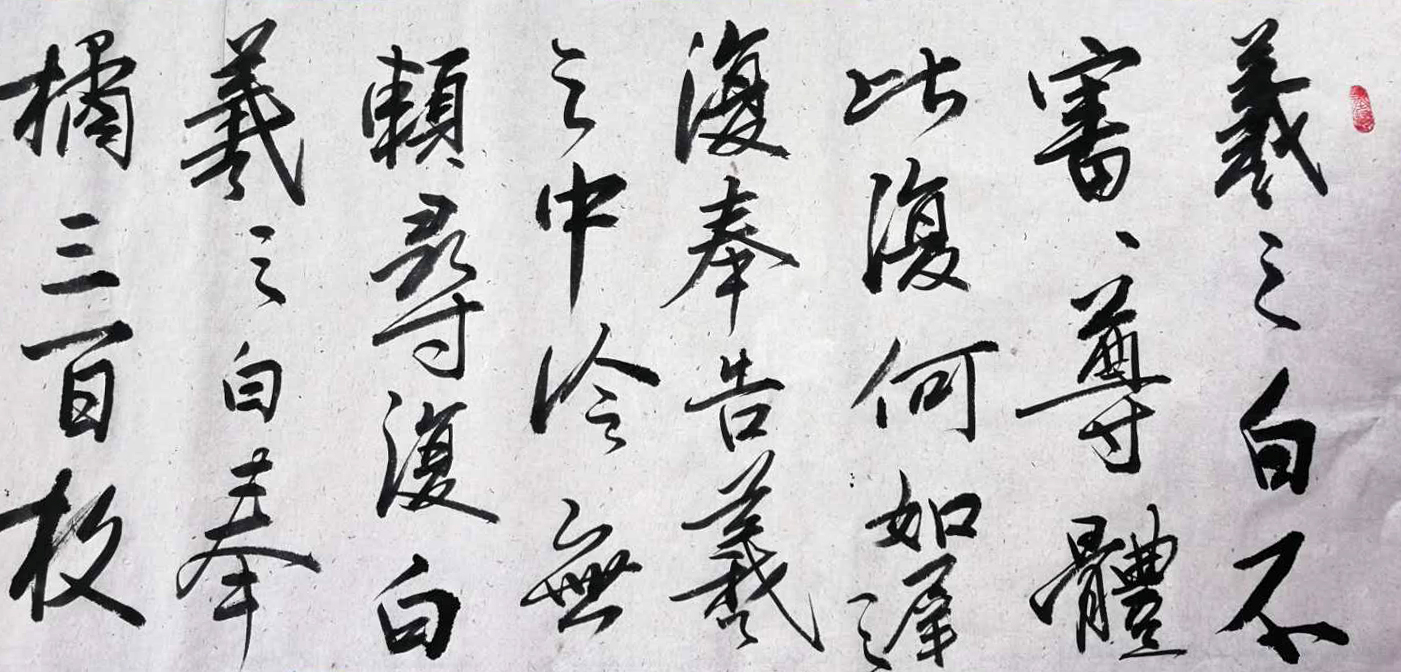 羲之白不
審、尊體
比復何如遲
復奉告羲
之中冷無
賴尋復白
羲之白奉
橘三百枚